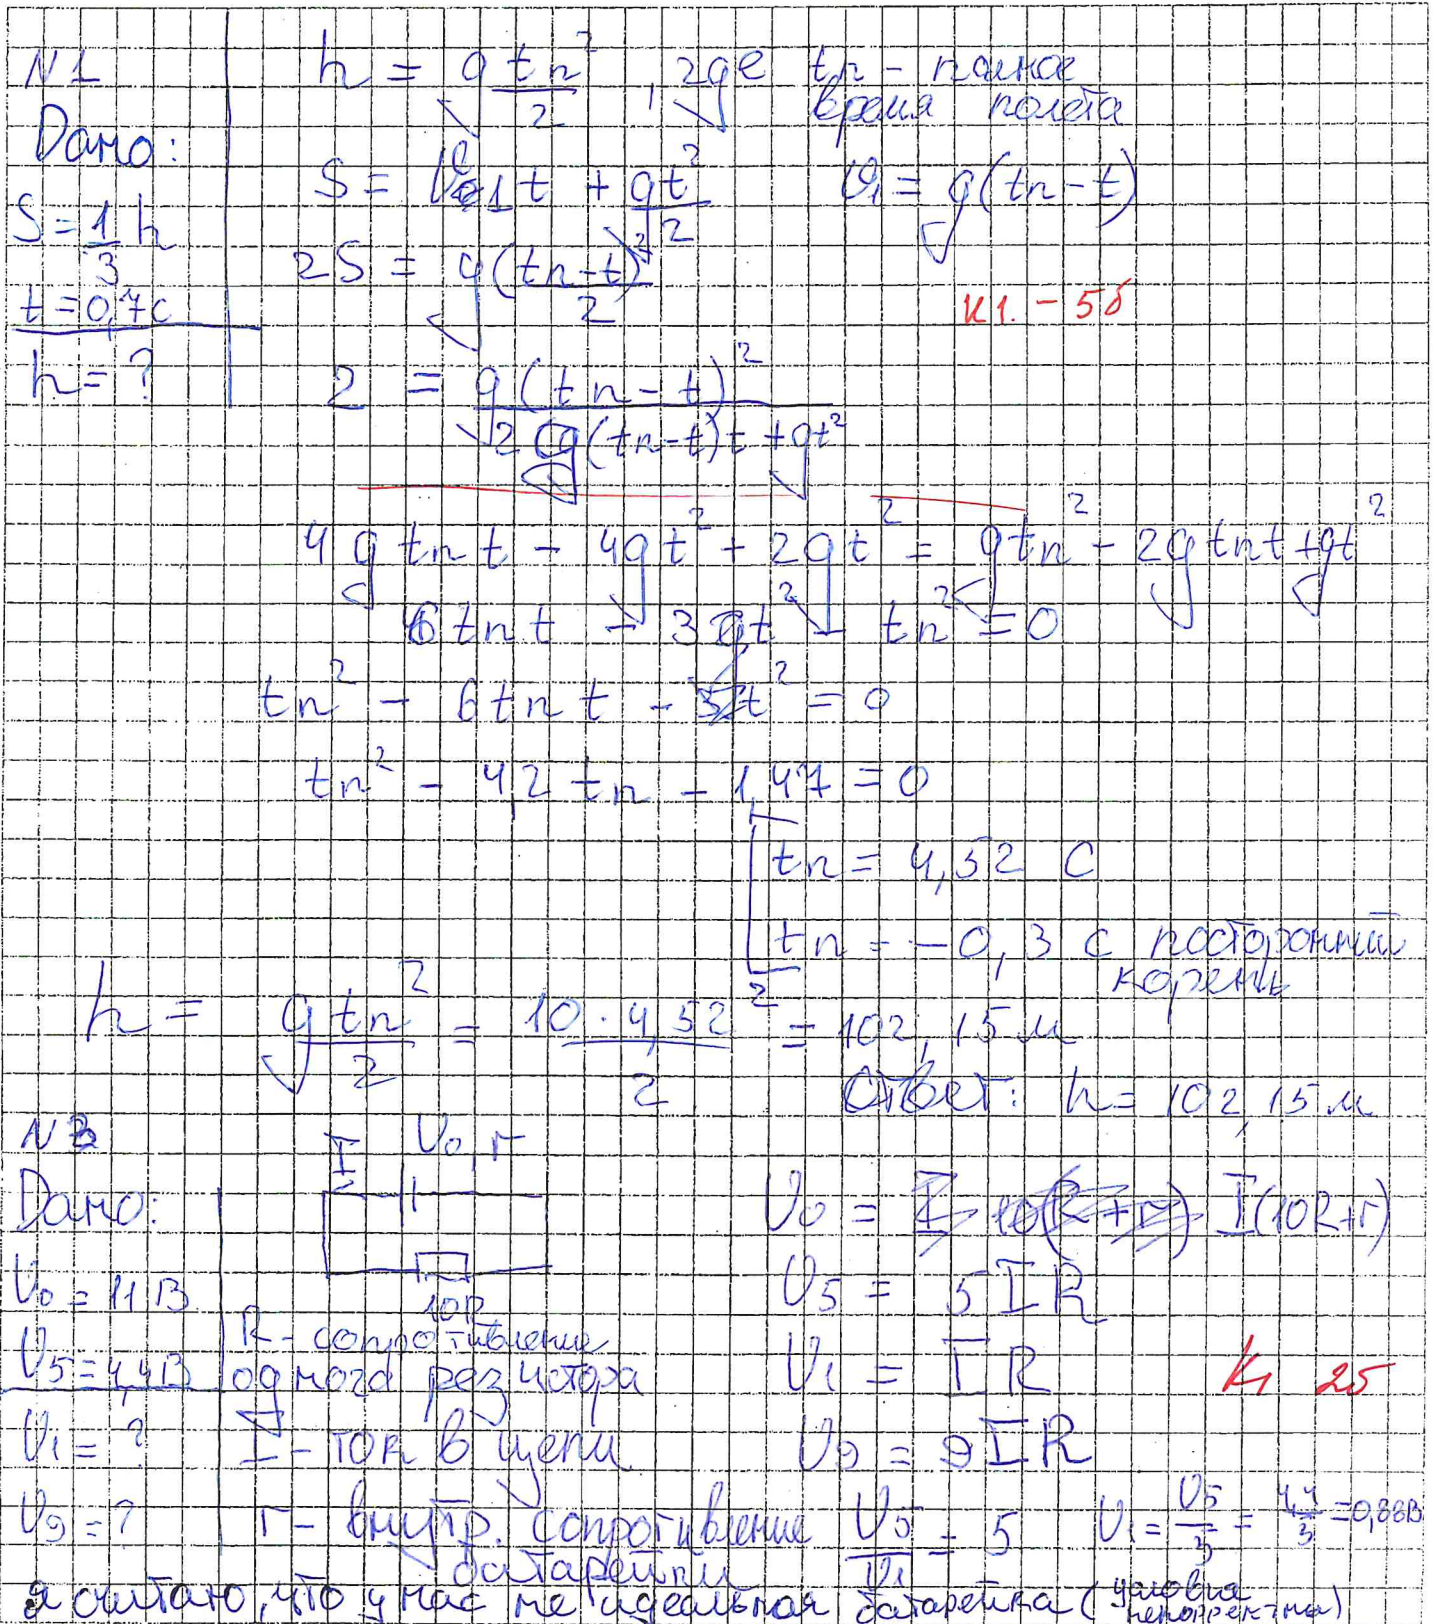 N1
Дано:
S = 1/3 h
t = 0,7с
h = ?
h = g tп²/2 , где tп - полное
время полёта
S = V1 t + gt²/2    V1 = g(tп-t)
2S = g(tп-t)²/2
К1. - 5б
2 = g(tп-t)²/2g(tп-t)t + gt²
4g tп t - 4gt² + 2gt² = gtп² - 2g tп t + gt²
6 tп t - 3t² - tп² = 0
tп² - 6 tп t - 3t² = 0
tп² - 4,2 tп - 1,47 = 0
tп = 4,52 с
tп = -0,3 с посторонний
корень
h = g tп²/2 = 10·4,52²/2 = 102,15 м
Ответ: h = 102,15 м
N3
Дано:
U0 = 11В
U5 = 4,4В
U1 = ?
U9 = ?
I U0, r
10R
R - сопротивление
одного резистора
I - ток в цепи
r - внутр. сопротивление
батарейки
U0 = I(10R+r)
U5 = 5IR
U1 = IR
К1 2б
U9 = 9IR
U5/U1 = 5    U1 = U5/5 = 4,4/5 = 0,88В
я считаю, что у нас не идеальная батарейка (условия
некорректны)